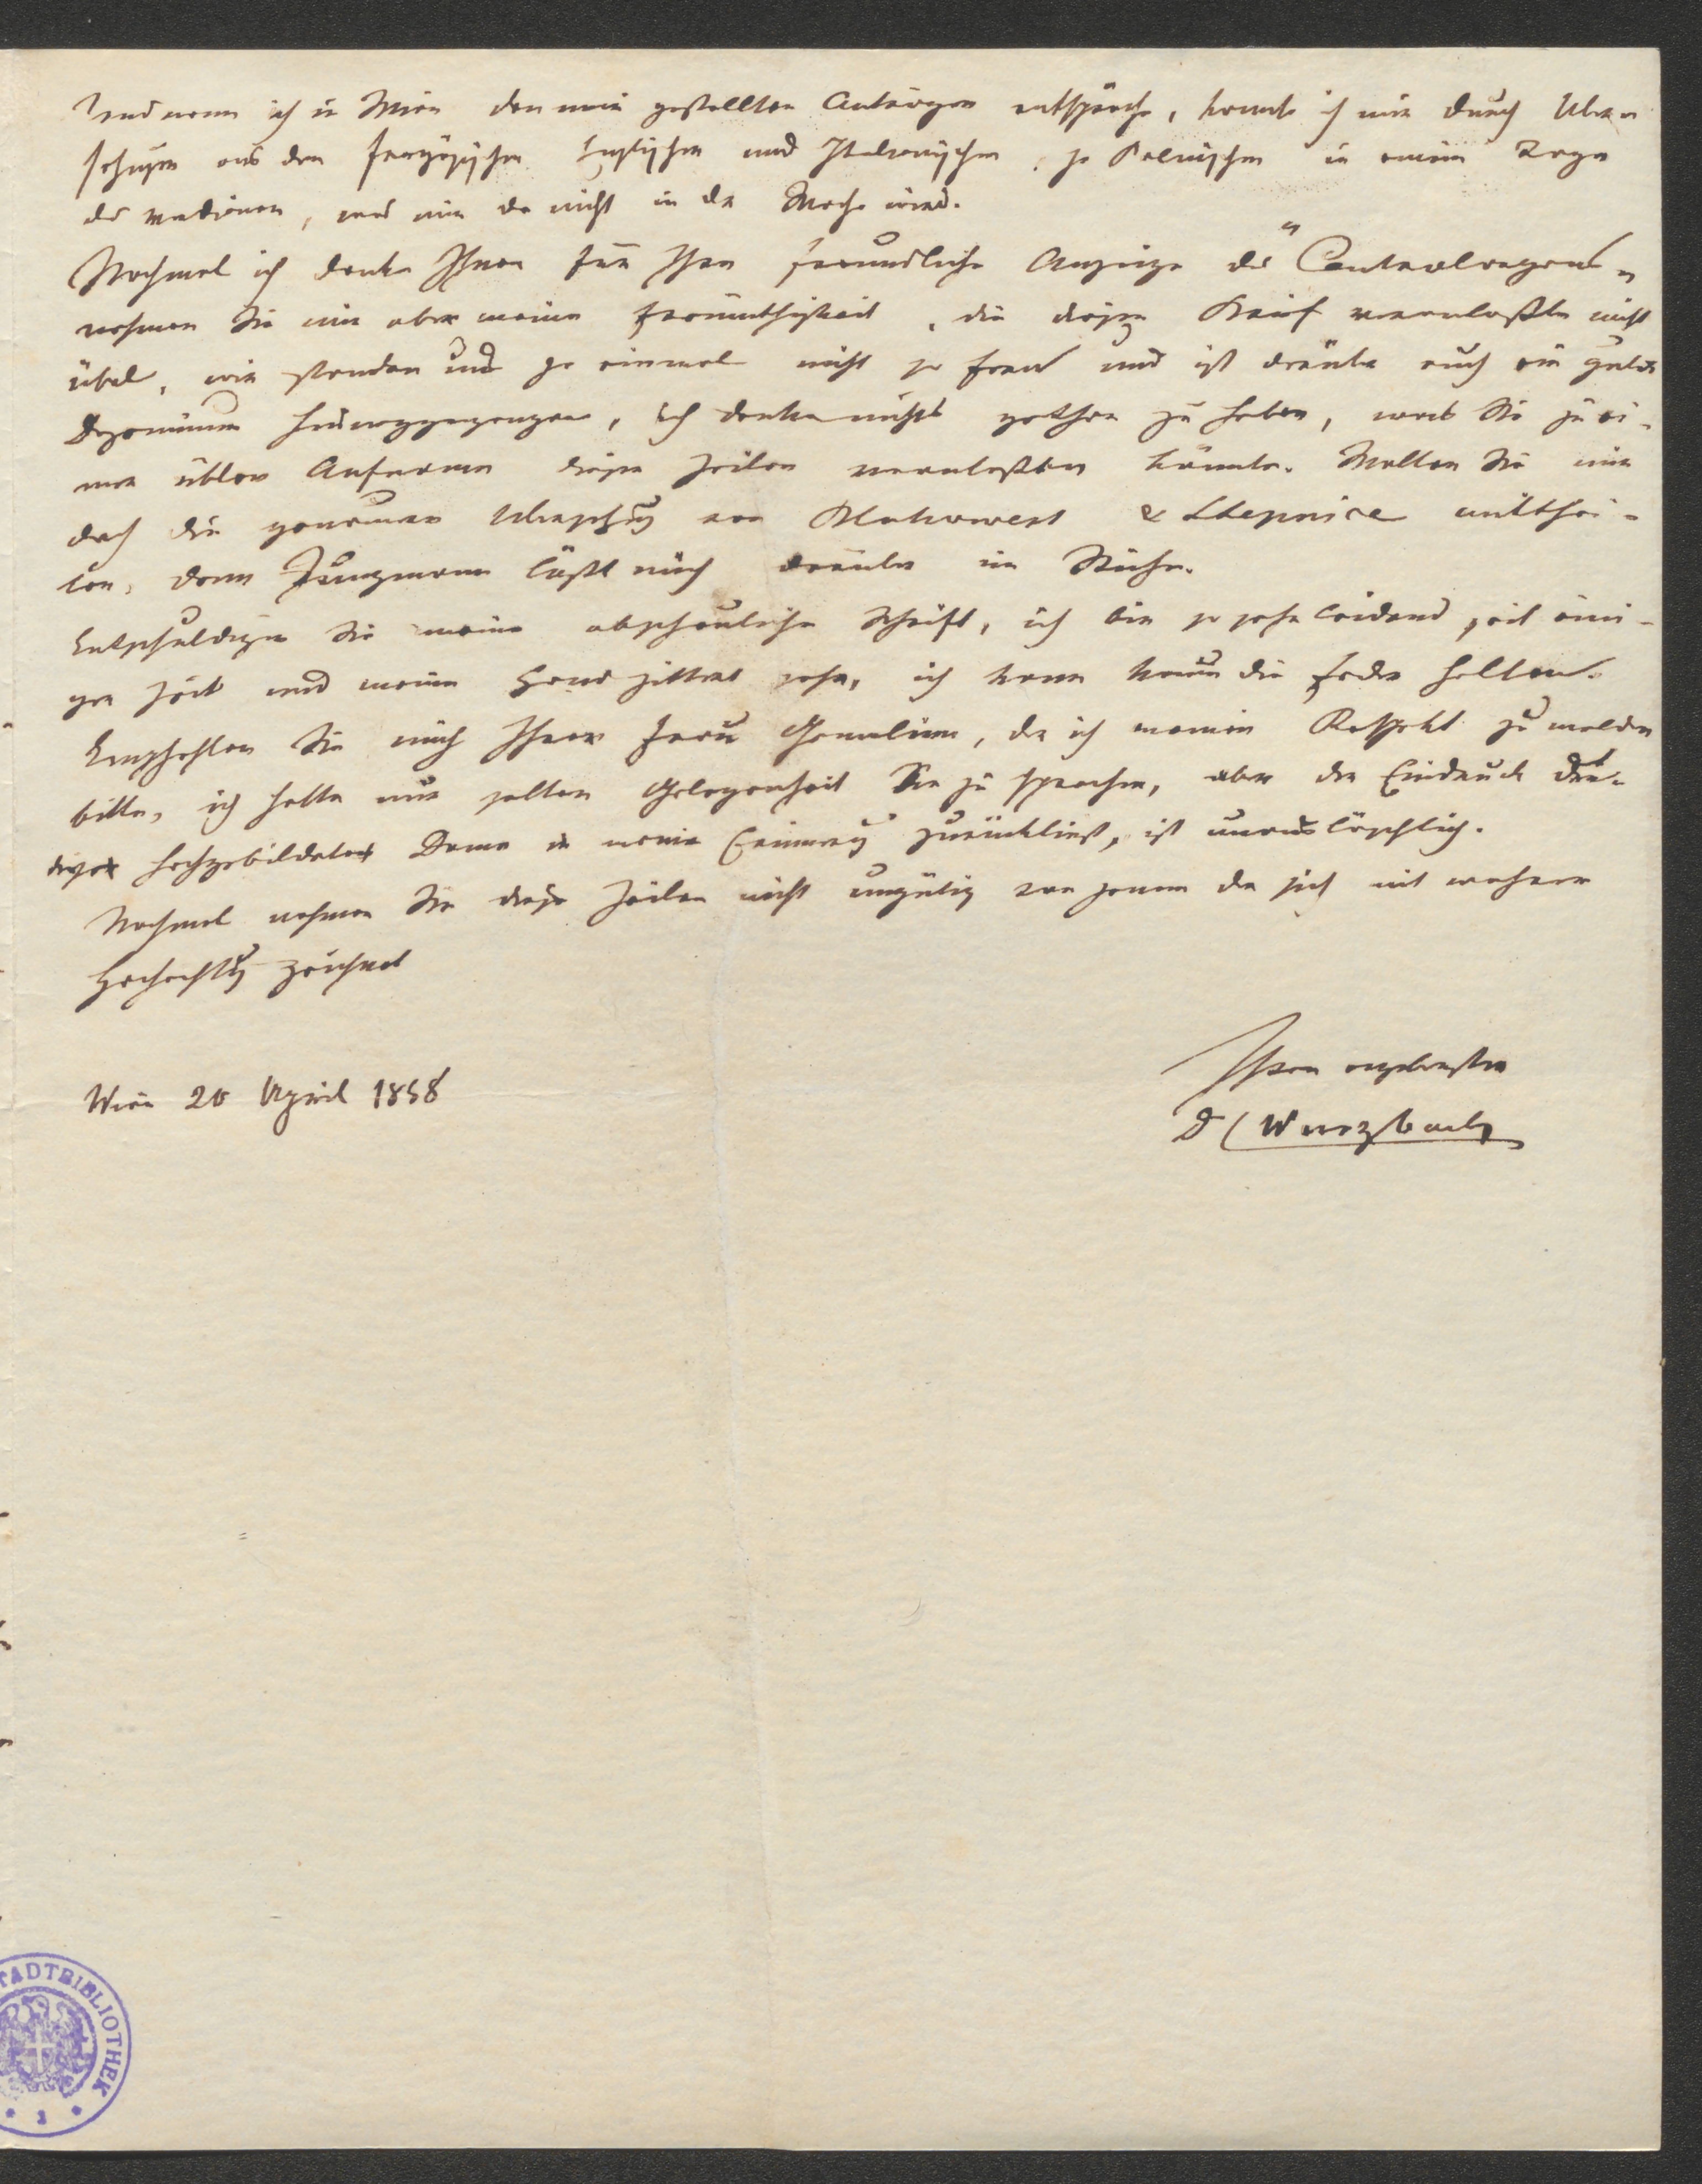 und wenn ich in Wien den mir gestellten Anträgen entspräche, konnte ich mir durch Über-
setzungen aus dem französischen Englischen und Italienischen, ja Polnischen in einem Tage
das verdienen, was mir da nicht in der Woche wird.
Nochmal ich danke Ihnen für Ihre freundliche Anzeige des "Centralorgans"
nehmen Sie mir aber meine Freimüthigkeit, die diesen Brief veranlaßte nicht
übel, wir standen uns ja einmal nicht so fern und ist darüber auch ein gutes
Dezennium hinweggegangen, ich denke nichts gethan zu haben, was Sie zu ei-
ner üblen Aufnahme dieser Zeilen veranlaßen könnte. Wollen Sie mir
doch die genauere Übersetzung von & Stepnice mitthei-
len, denn Jungmann läßt mich darüber im Stiche.
Entschuldigen Sie meine abscheuliche Schrift, ich bin so sehr leidend seit eini-
ger Zeit und meine Hand zittert sehr, ich kann kaum die Feder halten.
Empfehlen Sie mich Ihrer Frau Gemalinn, der ich meinen Respekt zu melden
bitte, ich hatte nur selten Gelegenheit Sie zu sprechen, aber der Eindruck den
diese hochgebildete Dame in meiner Erinnerung zurückließ, ist unauslöschlich.
Nochmal nehmen Sie diese Zeilen nicht ungütig von jenem der sich mit wahrer
Hochachtung zeichnet
Ihren ergebensten
Wien 20 April 1858
D Wurzbach
STADTBIBLIOTHEK